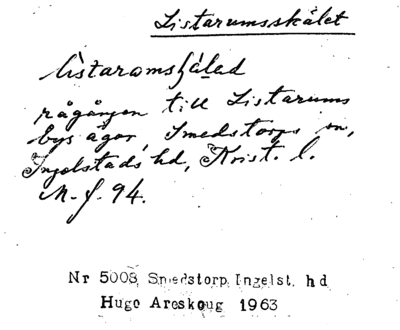 Listarumsskälet
listaramsʃälad
rågången till Listarums
bys ägor, Smedstorps sn,
Ingelstads hd, Krist. l.
M.f. 94.
Nr 5008, Smedstorp, Ingelst. hd
Hugo Areskoug 1963